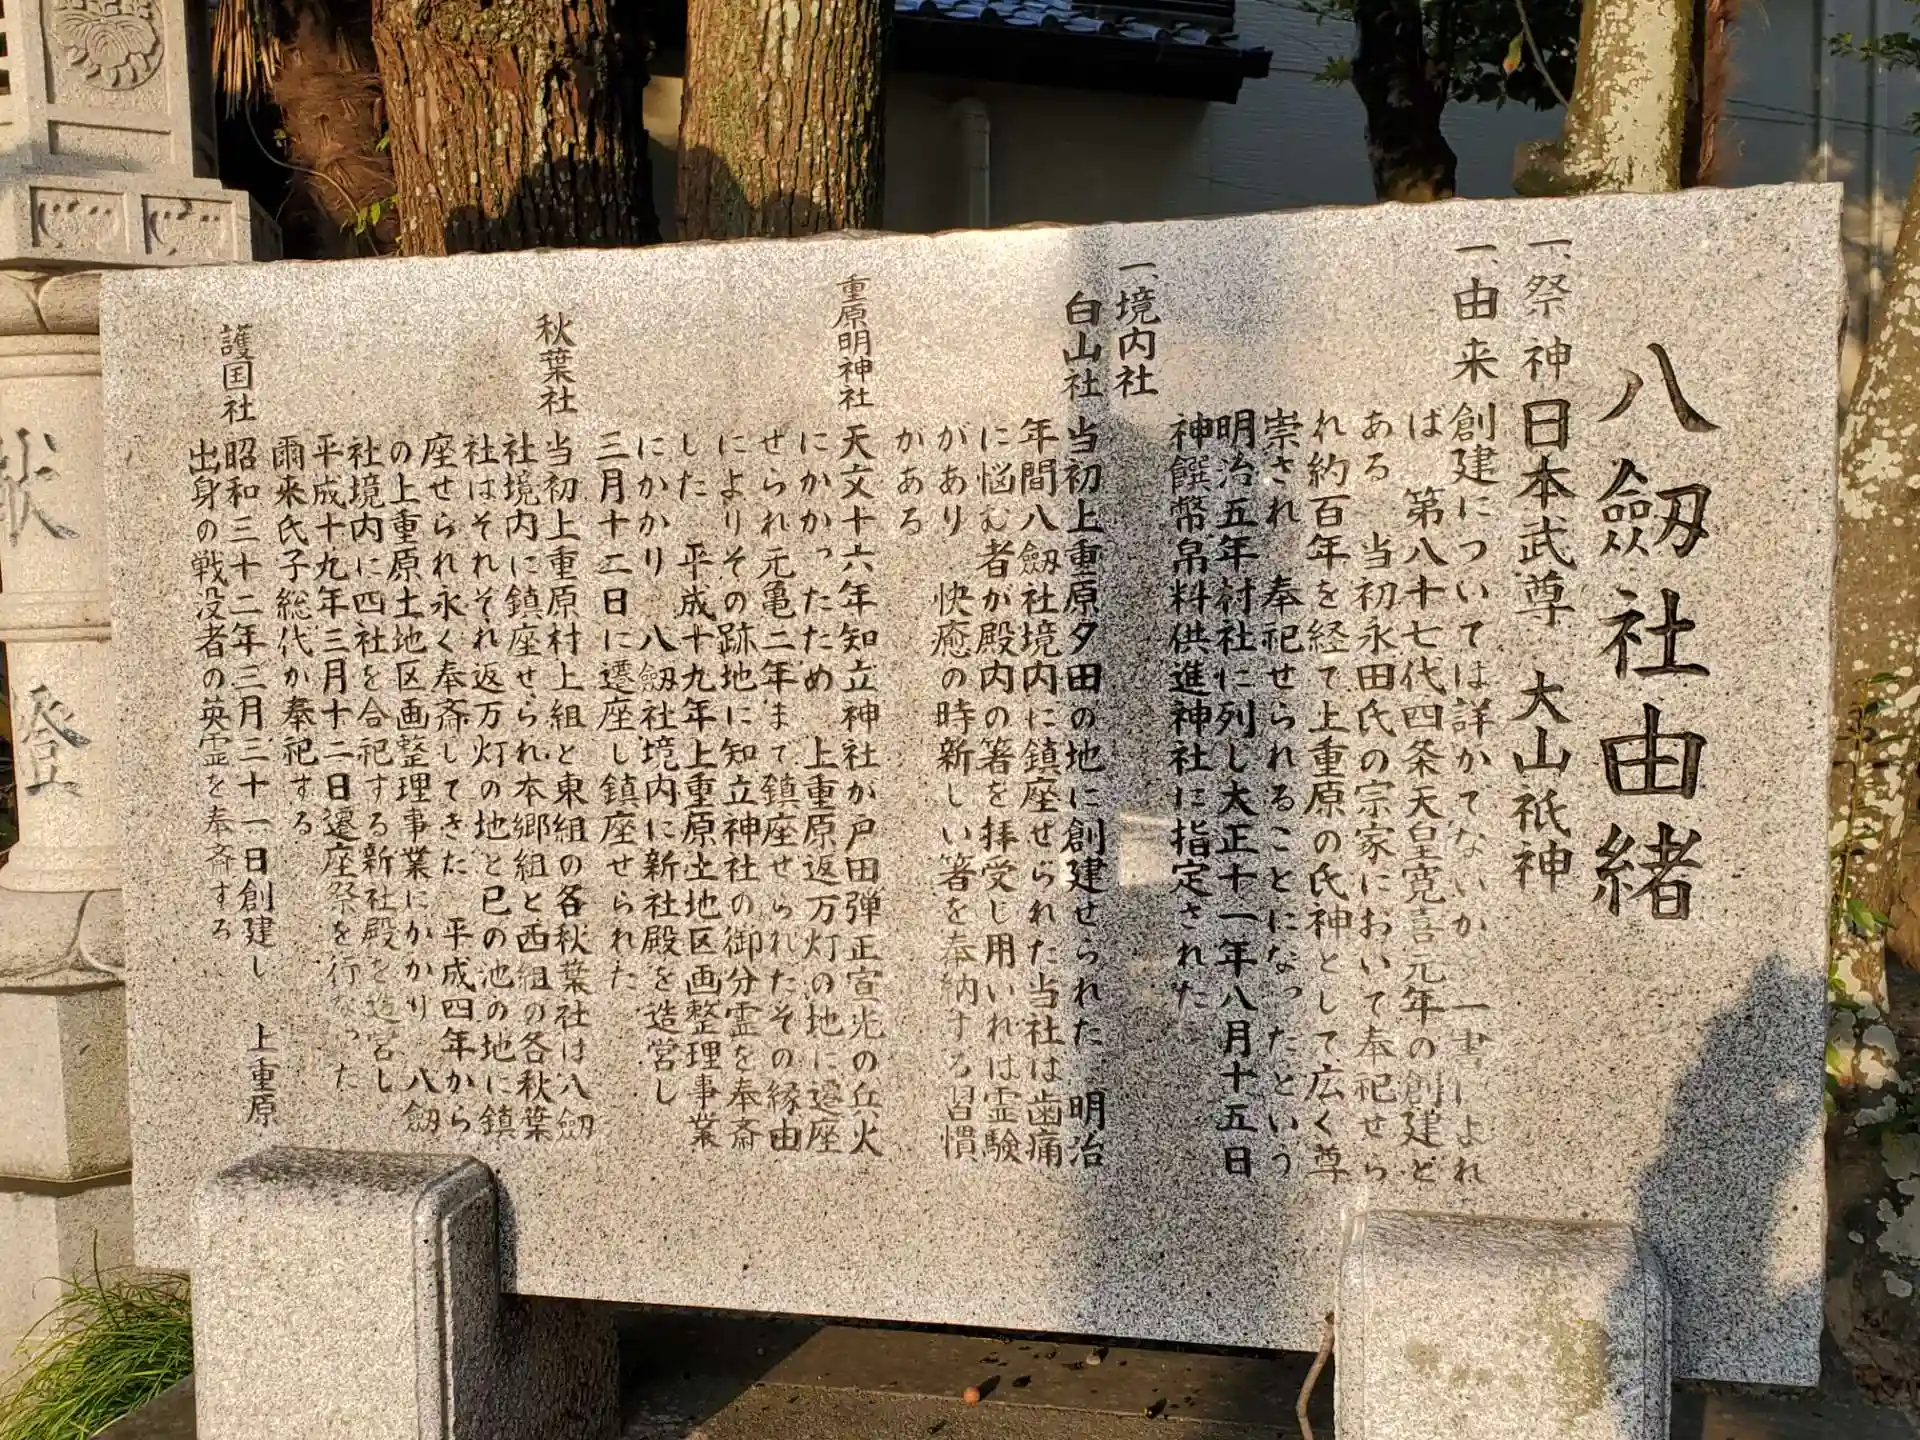 八劔社由緒
一、祭神 日本武尊 大山祇神
一、由来 創建については詳かでないが 一書によれ
ば 第八十七代四条天皇寛喜元年の創建と
ある 当初永田氏の宗家において奉祀せら
れ約百年を経て上重原の氏神として広く尊
崇され 奉祀せられることになったという
明治五年村社に列し大正十一年八月十五日
神饌幣帛料供進神社に指定された
一、境内社
白山社 当初上重原夕田の地に創建せられた 明治
年間八劔社境内に鎮座せられた当社は歯痛
に悩む者が殿内の箸を拝受し用いれば霊験
があり 快癒の時新しい箸を奉納する習慣
がある
重原明神社 天文十六年知立神社が戸田弾正宣光の兵火
にかかったため 上重原返万灯の地に遷座
せられ元亀二年まで鎮座せられたその縁由
によりその跡地に知立神社の御分霊を奉斎
した 平成十九年上重原土地区画整理事業
にかかり 八劔社境内に新社殿を造営し
三月十二日に遷座し鎮座せられた
秋葉社 当初上重原村上組と東組の各秋葉社は八劔
社境内に鎮座せられ本郷組と西組の各秋葉
社はそれぞれ返万灯の地と巳の池の地に鎮
座せられ永く奉斎してきた 平成四年から
の上重原土地区画整理事業にかかり 八劔
社境内に四社を合祀する新社殿を造営し
平成十九年三月十二日遷座祭を行なった
爾来氏子総代が奉祀する
護国社 昭和三十二年三月三十一日創建し 上重原
出身の戦没者の英霊を奉斎する